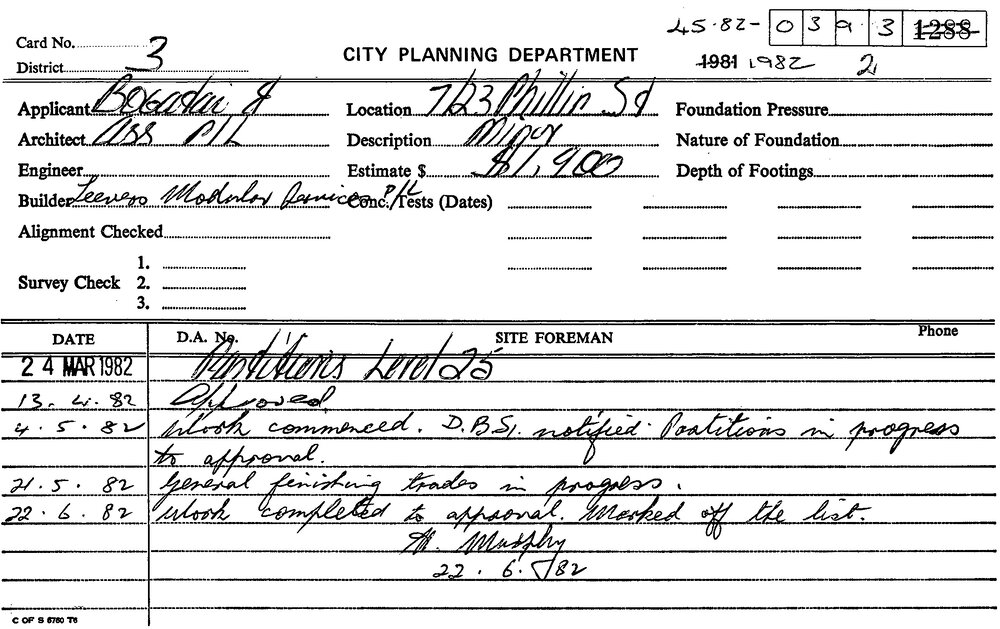 45·82- 0 3 9 3 1288
Card No. 3
District
CITY PLANNING DEPARTMENT
1981 1982 2
Applicant Bogardai &
Location 7/23 Phillip St
Foundation Pressure
Architect Ass P/L
Description Minor
Nature of Foundation
Engineer
Estimate $ $1,900
Depth of Footings
Builder Leevers Modular Services P/L
Conc. Tests (Dates)
Alignment Checked
1.
Survey Check 2.
3.
DATE D.A. No. SITE FOREMAN Phone
24 MAR 1982 Partitions Level 25
13. 4. 82 Approved
4. 5. 82 Work commenced. D.B.S. notified. Partitions in progress
to approval.
21. 5. 82 General finishing trades in progress.
22. 6. 82 Work completed to approval. Marked off the list.
Murphy
22. 6. 82
C OF S 5760 T6